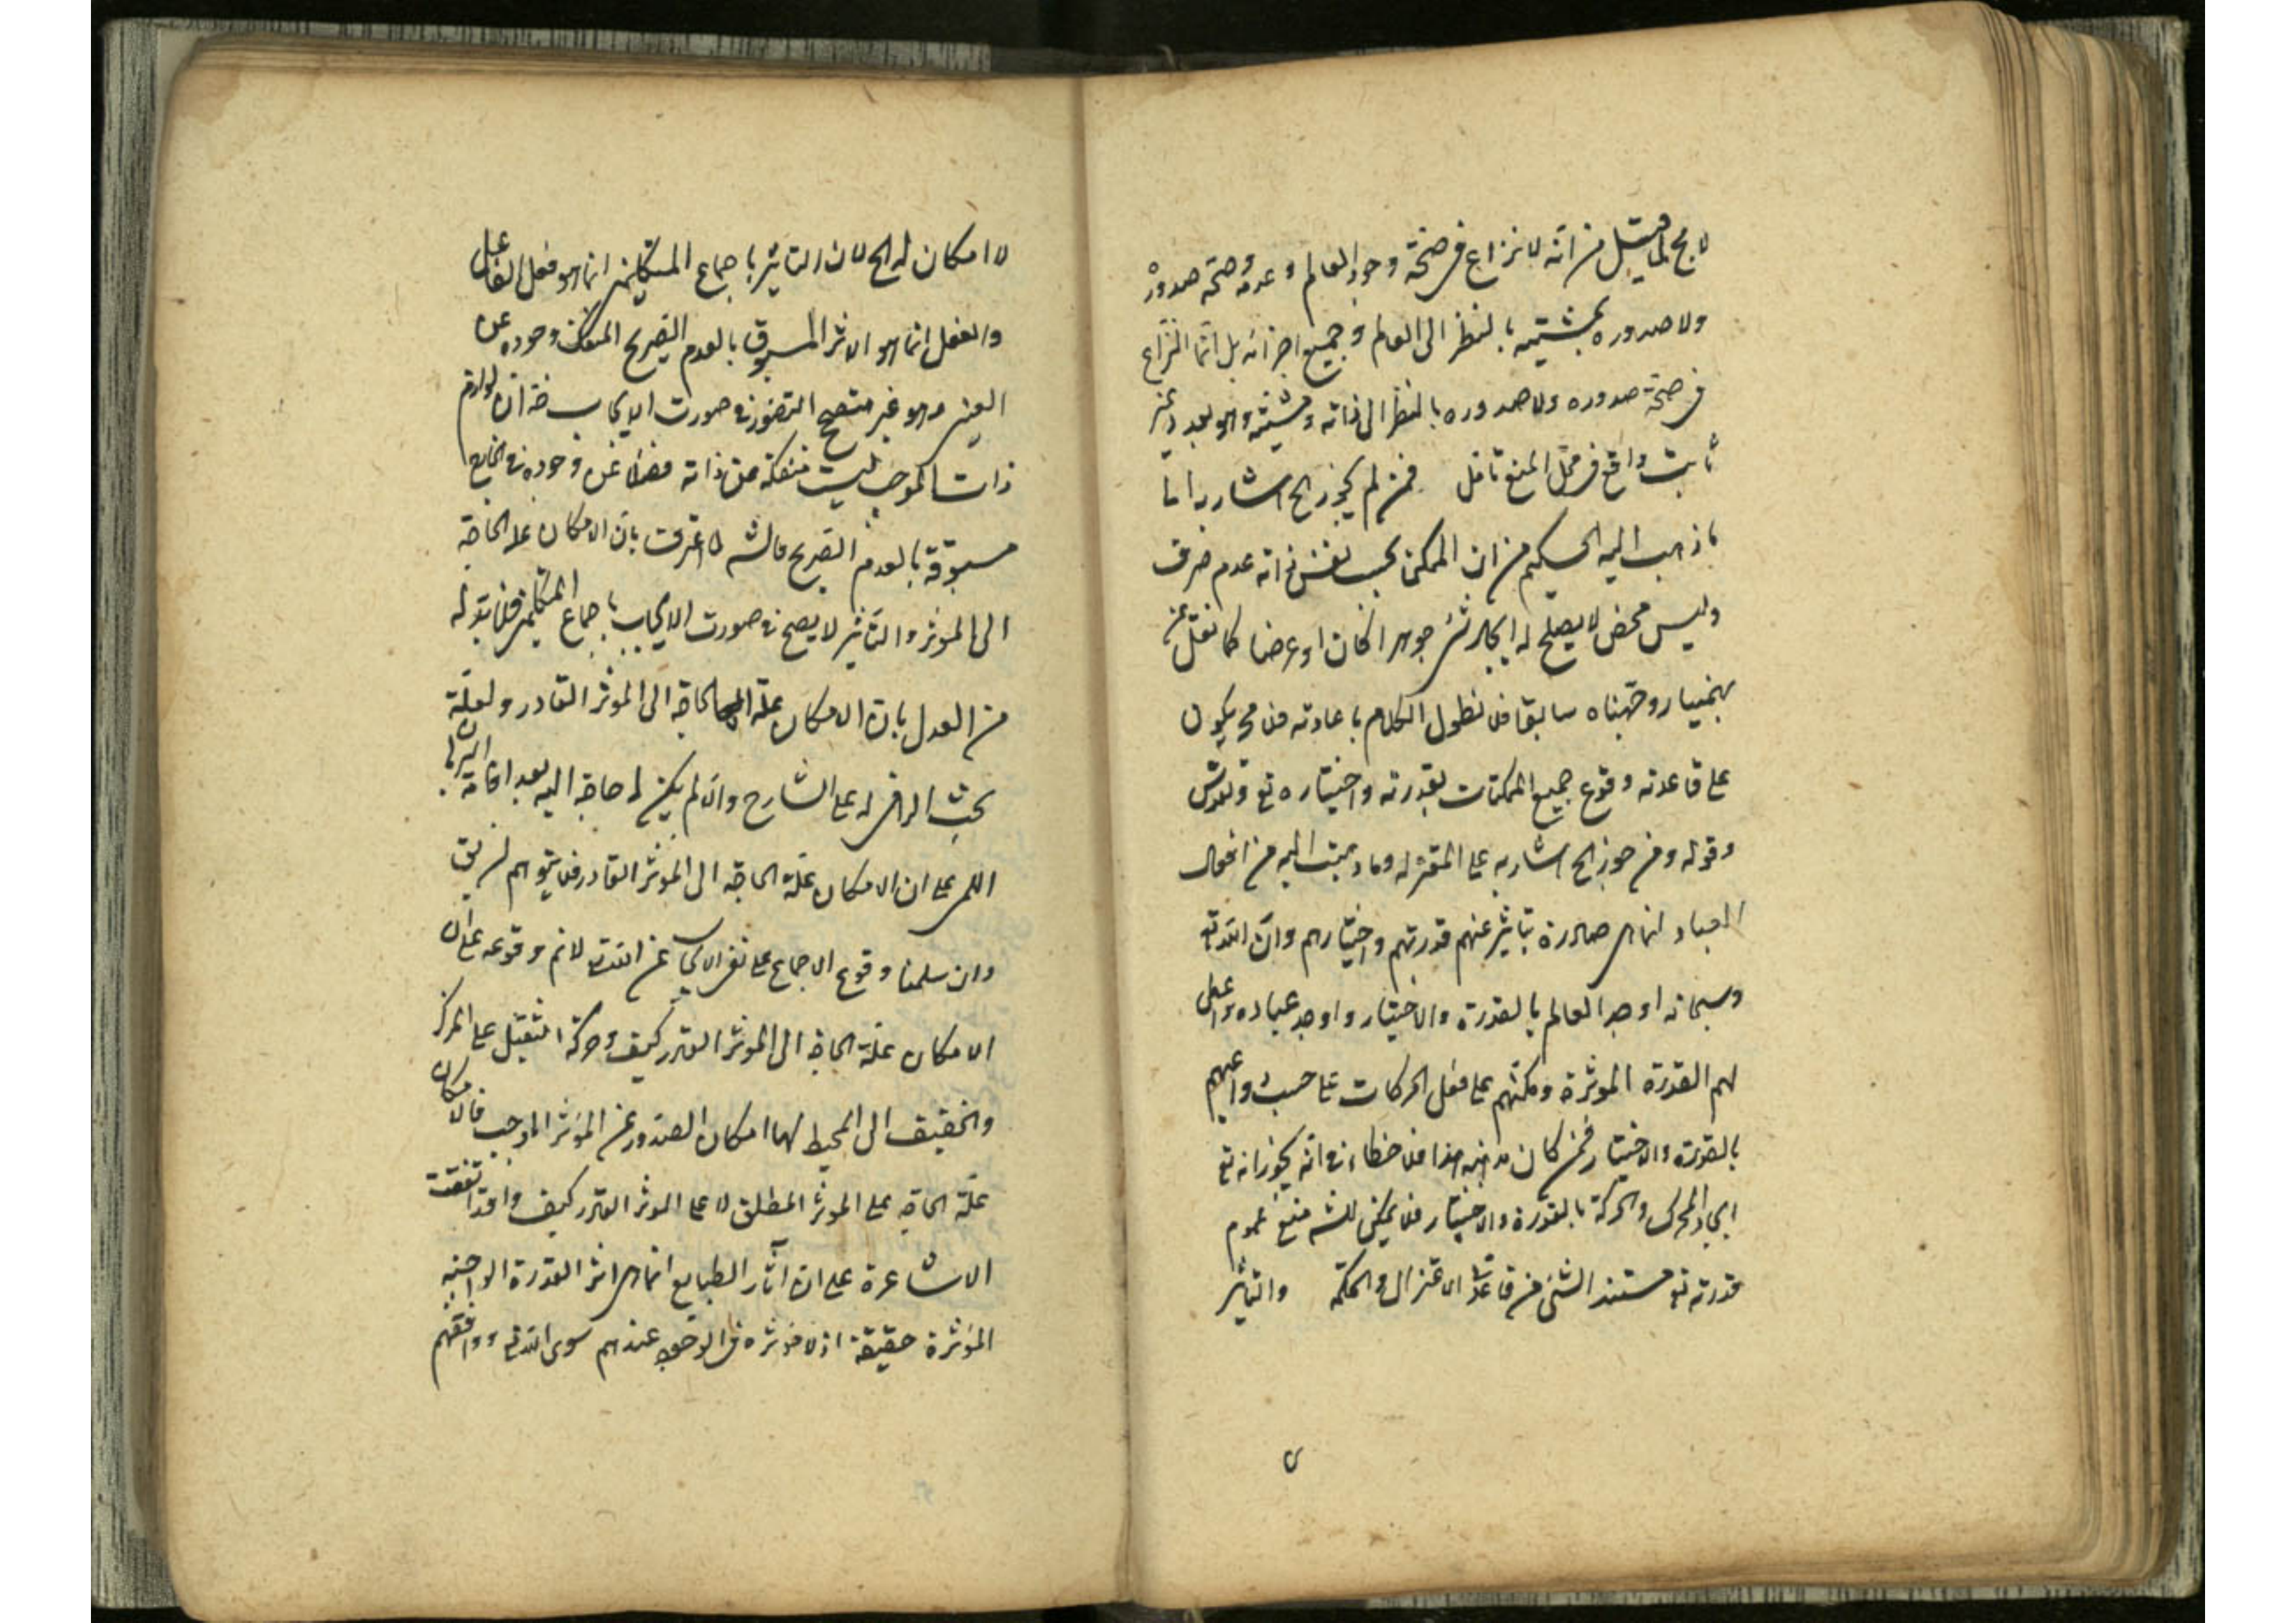 لا مح لما قيل من انه لا نزاع فى صحة وجود العالم وعدمه وصحة صدوره
ولا صدوره بمشيته بالنظر الى العالم وجميع اجزائه بل انما النزاع
فى صحة صدوره ولا صدوره بالنظر الى ذاته ومشيته وهو بعد غير
ثابت واقع فى محل المنع تامل فمن لم يجوز الخ اشار به اما
ما ذهب اليه الحكيم من ان الممكن بحسب نفس ذاته عدم صرف
وليس محض لا يصلح له ايجاد شئ جوهرا كان او عرضا كما نقل عن
بهمنيار وجهناه سابقا فلا نطول الكلام باعادته فلا مح يكون
على قاعدته وقوع جميع الممكنات بقدرته واختياره تع وتقدس
وقوله ومن جوز الخ اشار به على المعتزله وما ذهبت اليه من افعال
العباد انما هى صادرة بتاثير عنهم قدرتهم واختيارهم وان الله تع
وسبحانه اوجد العالم بالقدرة والاختيار واوجد عباده واعطى
لهم القدرة الموثرة ومكنهم على فعل الحركات على حسب دواعيهم
بالقدرة والاختيار فمن كان مذهبه هذا فلا خطاء فى انه يجوز انه تع
ايجاد المحرك والحركة بالقدرة والاختيار فلا يمكن للش منع عموم
قدرته تع مستند الشئ من قاعدتى الاعتزال والحكمة والتاثير
لا امكان له الخ لان التاثير باجماع المتكلمين انما هو فعل الفاعل
والفعل انما هو الاثر المسبوق بالعدم الصريح المنفك وجوده عن
العين وهو غير متصحح التصور فى صورت الايجاب ضه ان لوازم
ذات الموجب ليست منفكة عن ذاته فضلا عن وجوده فى الخارج
مسبوقة بالعدم الصريح فالش لما اعترفت بان الامكان علة الحاجة
الى الموثر والتاثير لا يصح فى صورت الايجاب باجماع المتكلمين فلا بد له
من العدل بان الامكان علة الحاجة الى الموثر القادر ولعلة
بحث الرافى له على الشارح وان لم يكن له حاجة اليه بعد اقامة البرهان
اللمى على ان الامكان علة الحاجة الى الموثر القادر فلا يتوهم ان يق
وان سلمنا وقوع الاجماع على نفى الايجاب عن الله تع لا نم وقوعه على ان
الامكان علة الحاجة الى الموثر القادر كيف وحركة الثقيل على المركز
والخفيف الى المحيط لهما امكان الصدور عن الموثر الموجب فالامكان
علة الحاجة على الموثر المطلق لا على الموثر القادر كيف وقد اتفقت
الاشاعرة على ان آثار الطبايع انما هى اثر القدرة الواجبة
المؤثرة حقيقة اذ لا مؤثره فى الوجود عندهم سوى الله تع ووافقهم